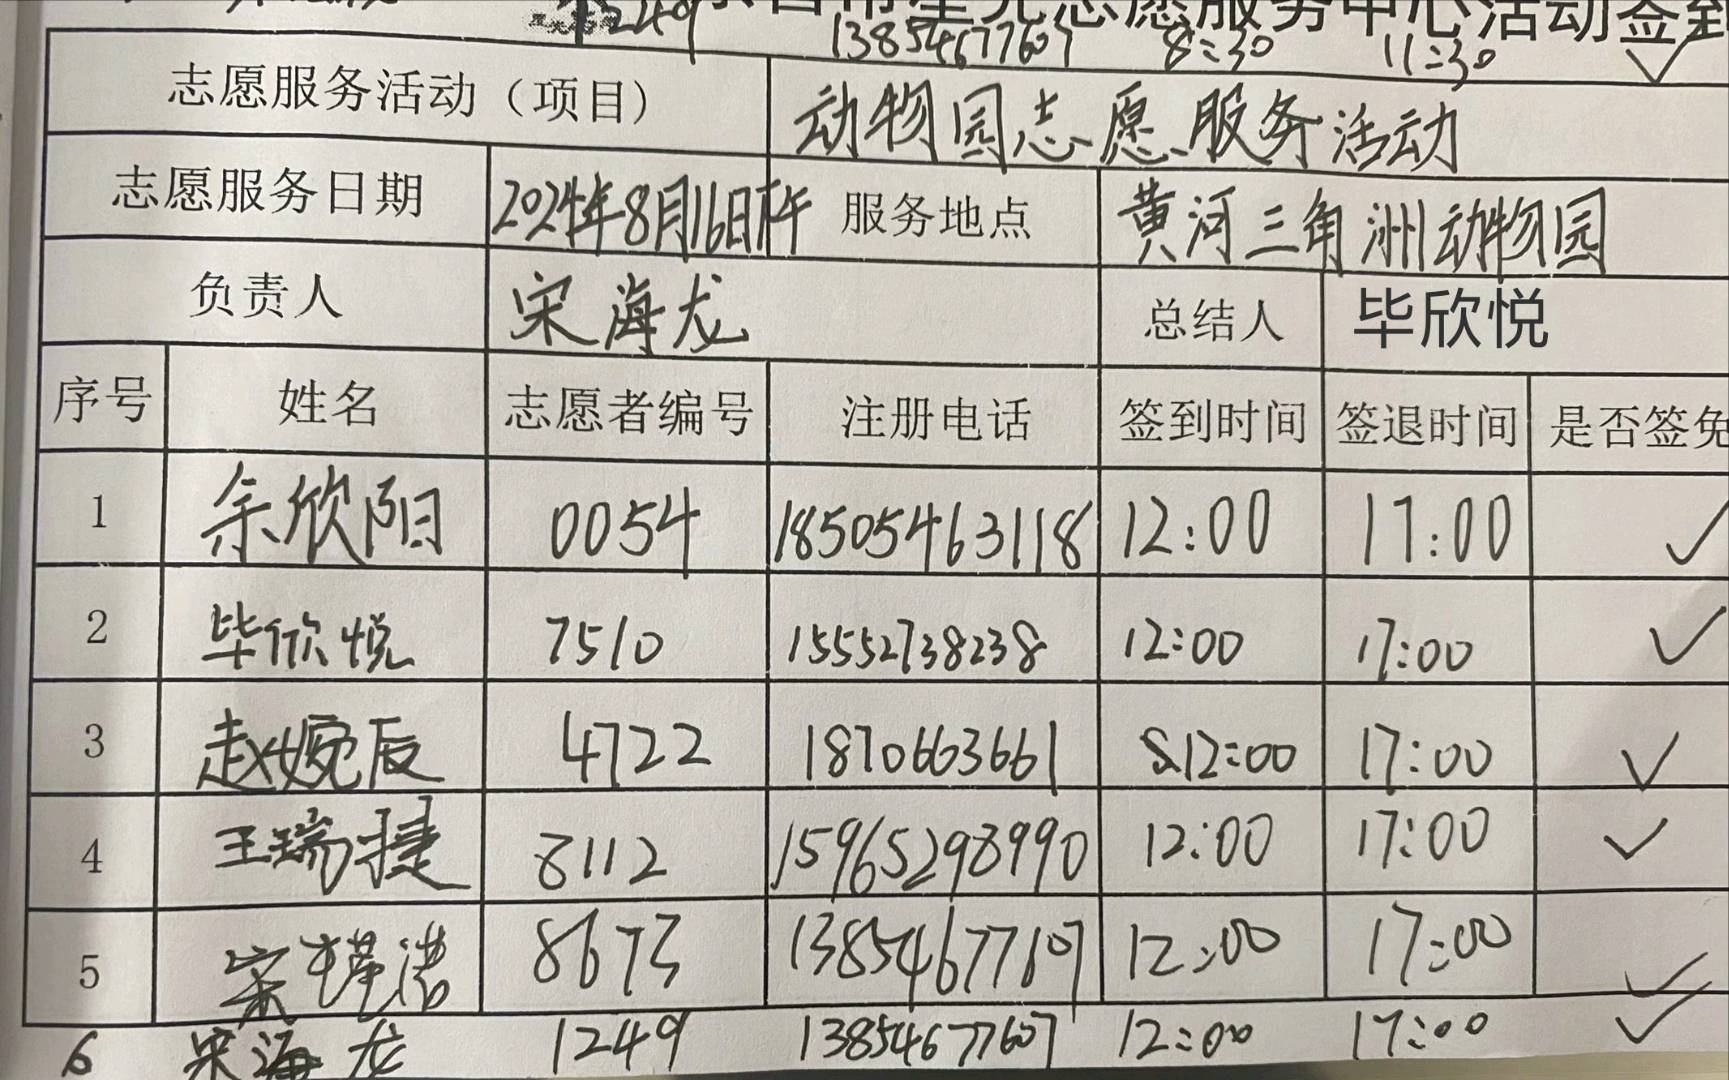 1249 13854677607 8:30 11:30 ✓
志愿服务中心活动签到
志愿服务活动（项目） 动物园志愿服务活动
志愿服务日期 2024年8月16日下午 服务地点 黄河三角洲动物园
负责人 宋海龙 总结人 毕欣悦
序号 姓名 志愿者编号 注册电话 签到时间 签退时间 是否签免
1 余欣阳 0054 18505463118 12:00 17:00 ✓
2 毕欣悦 7510 15552738238 12:00 17:00 ✓
3 赵婉辰 4722 1870663661 12:00 17:00 ✓
4 王瑞捷 8112 15965298990 12:00 17:00 ✓
5 宋瑾浩 8673 13854677607 12:00 17:00 ✓
6 宋海龙 1249 13854677607 12:00 17:00 ✓